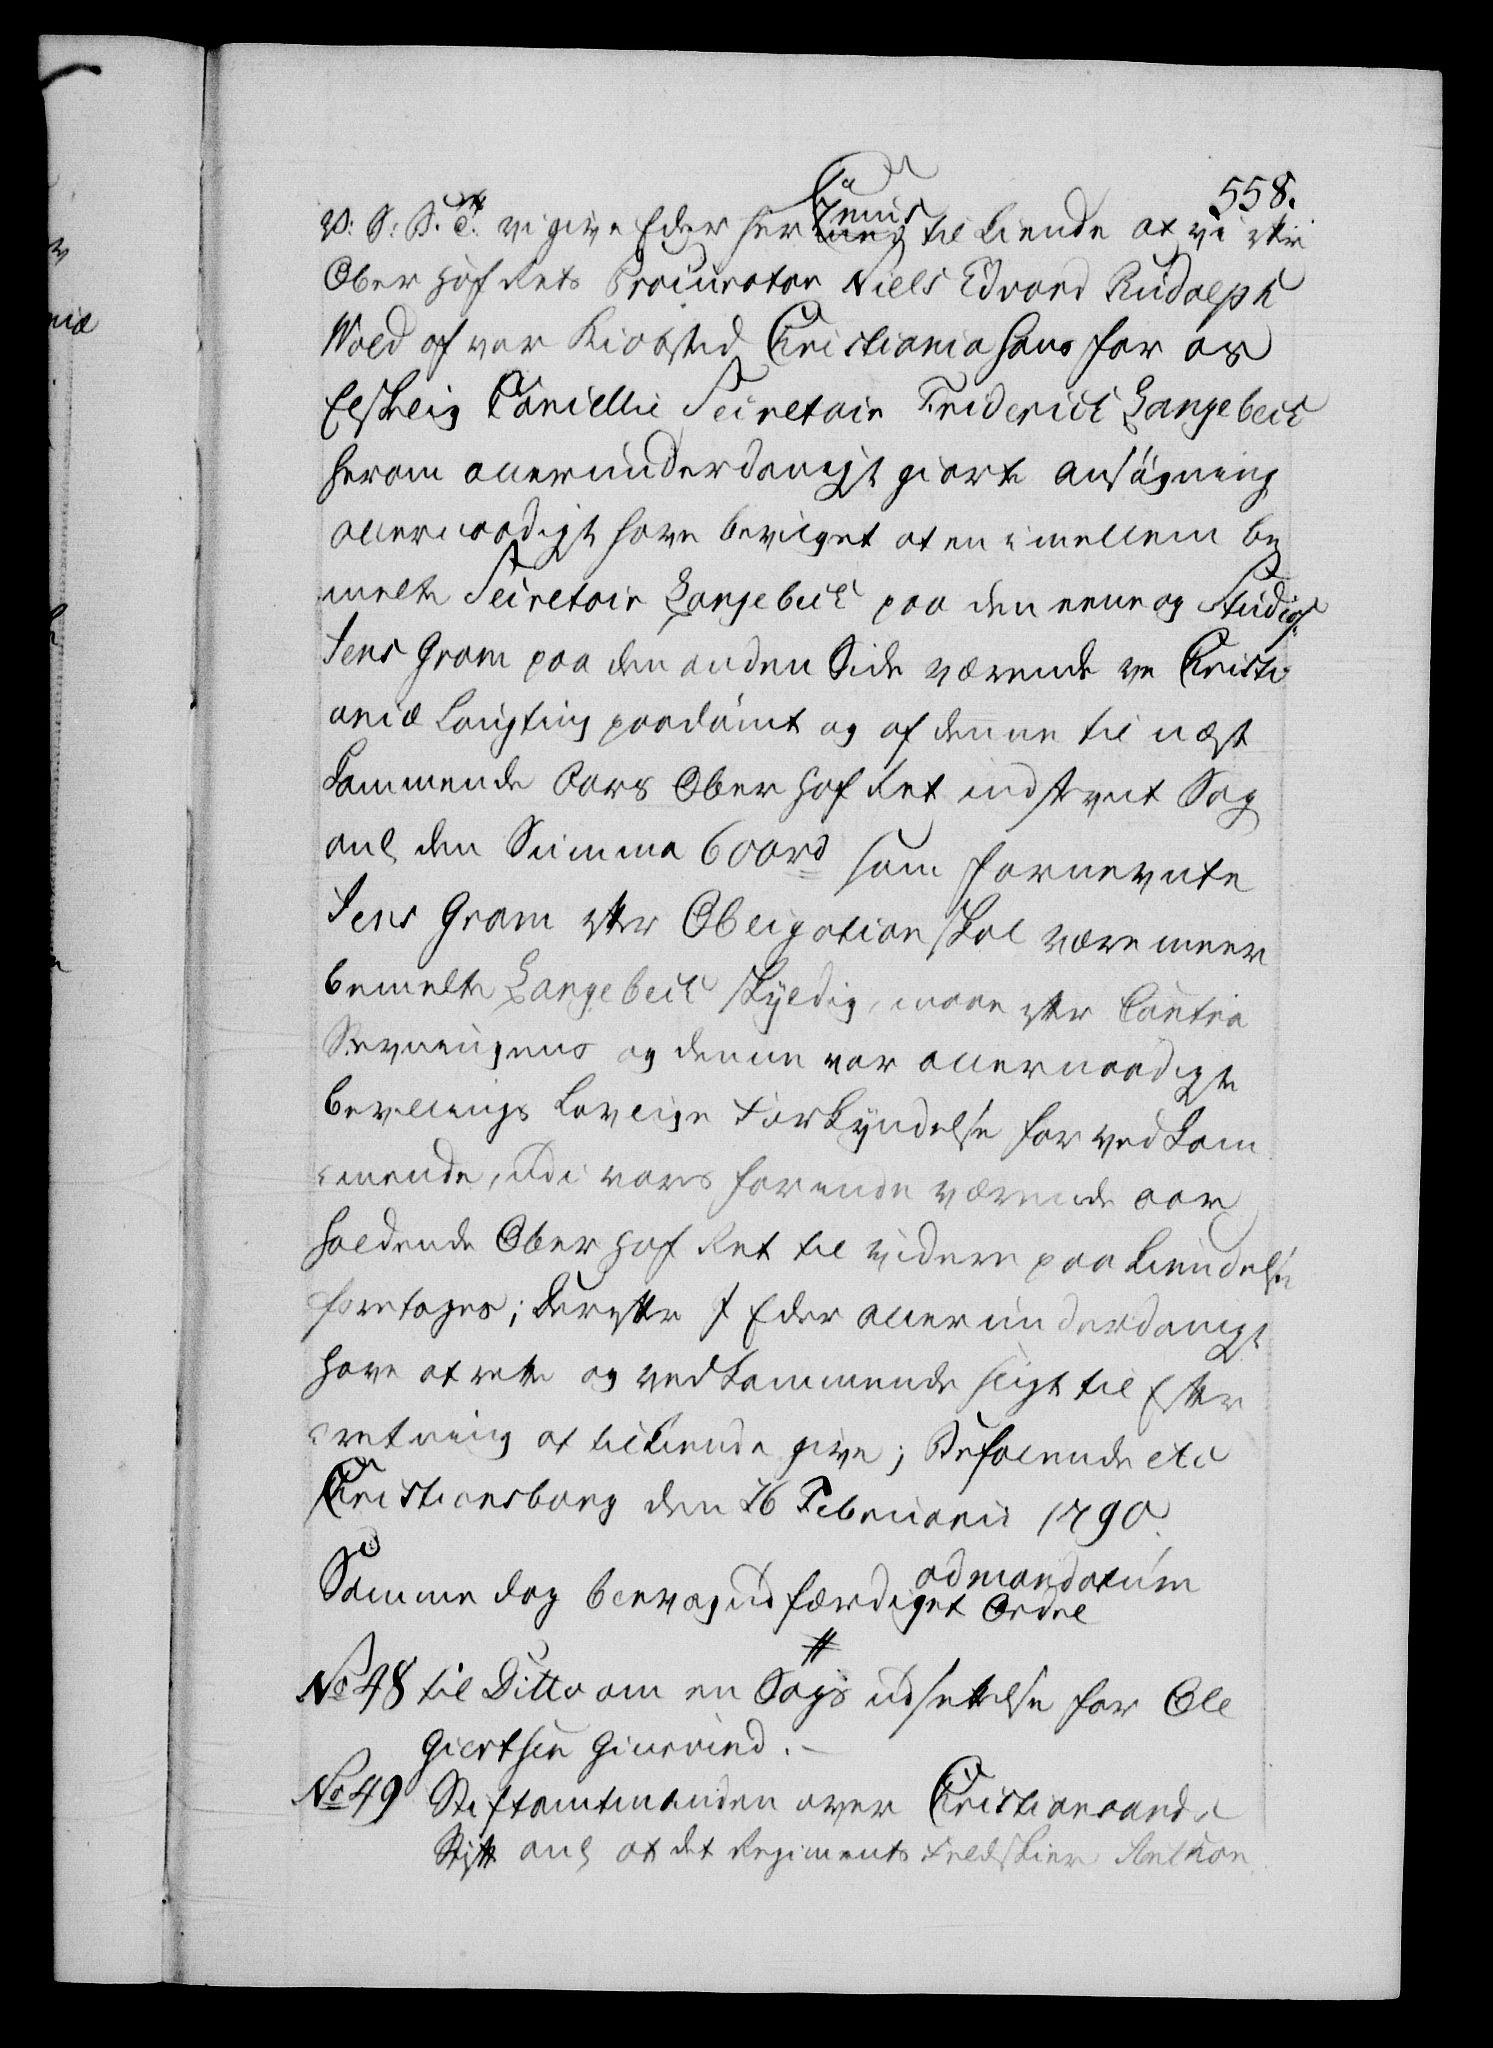 558.
P: S: B. T. vi give Eder her med til Kiende at vi efter
Ober Hof Rets Procurator Niels Edvard Rudolph
Wold af vor Kiøbsted Christiania hans for os
Elskelig Cancellie Secretair Friderich Langebech
herom allerunderdanigst giorte Ansøgning
allernaadigst have bevilget at en imellem be
melte Secretair Langebech paa den eene og Studios:
Jens Gram paa den anden Side værende ve Christi
aniæ Laugting paadømt og af denne til næst
kommende Aars Ober Hof Ret indstevnt Sag
anl den Summa 600rd som fornevnte
Jens Gram efter Obligation skal være meer
bemelte Langebech skyldig, maae efter Contra
Stevningens og denne vor allernaadigste
bevillings lovlige Forkyndelse for vedkom
mende, udi vores forinde værende aar
holdende Ober Hof Ret til videre paakiendelse
foretages; Derefter I Eder allerunderdanigst
have at rette og vedkommende sligt til Efter
retning at tilkiende give; Befalende etc
Christiansborg den 26 Februarii 1790.
Samme dag blev og udfærdiget Ordre
ad mandatum
No 48 til Ditto om en Sags udsettelse for Ole
Giertsen Giersvind.
No 49 Stiftamtmanden over Christiansands
Stift anl at det Regiments Feldskier